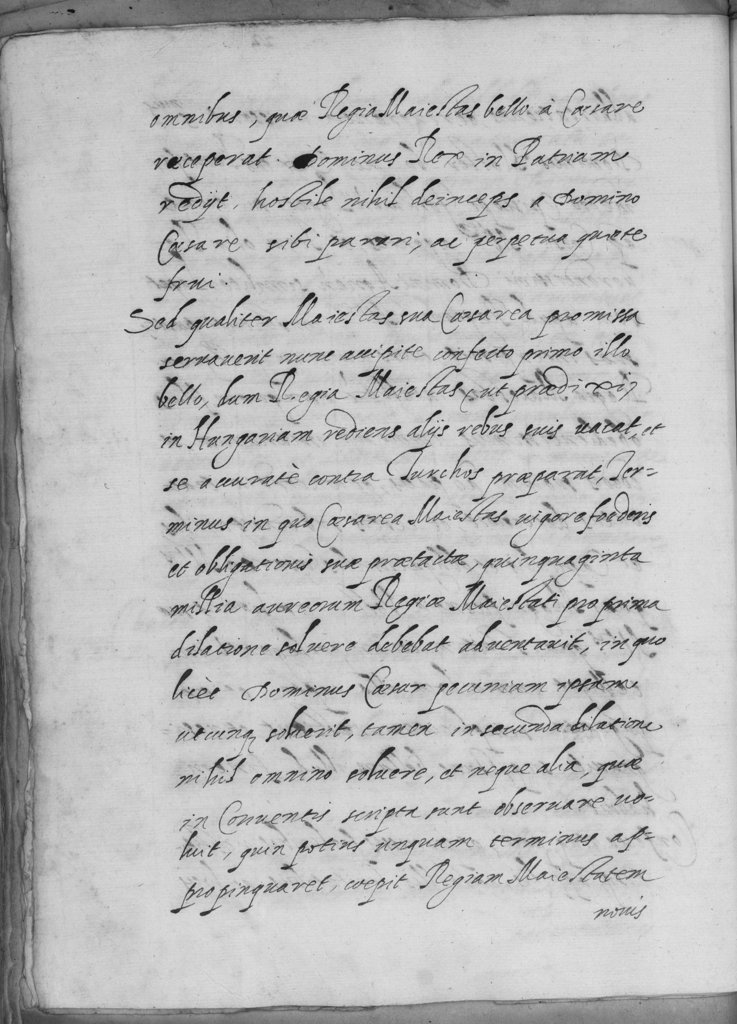 omnibus, quæ Regia Maiestas bello à Cæsare
receperat. Dominus Rex in Patriam
redijt, hostile nihil deinceps a Domino
Cæsare sibi parari, ac perpetua quiete
frui.
Sed qualiter Maiestas sua Cæsarea promissa
servaverit nunc accipite confecto primo illo
bello, dum Regia Maiestas, ut prædixi,
in Hungariam rediens alijs rebus suis vacat, et
se accuratè contra Turchos præparat, Ter-
minus in quo Cæsarea Maiestas vigore foederis
et obligationis suæ prætactæ, quinquaginta
millia aureorum Regiæ Maiestati pro prima
dilatione solvere debebat adventavit, in quo
licèt Dominus Cæsar pecuniam ipsam
utcunq; solverit, tamen in secunda dilatione
nihil omnino solvere, et neque alia, quæ
in Conventis scripta sunt observare vo-
luit, quin potius unquam terminus ap-
propinquaret, coepit Regiam Maiestatem
novis